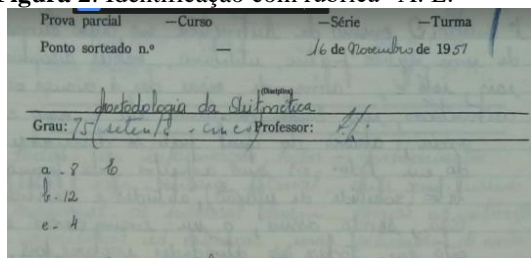 Figura 2: Identificação com rubrica "A. L.
Prova parcial —Curso —Série —Turma
Ponto sorteado n.º — 16 de Novembro de 1957
(Disciplina)
Metodologia da Aritmética
Grau: 75 (setenta e cinco) Professor:
a - 8 b
b - 12
e - 4